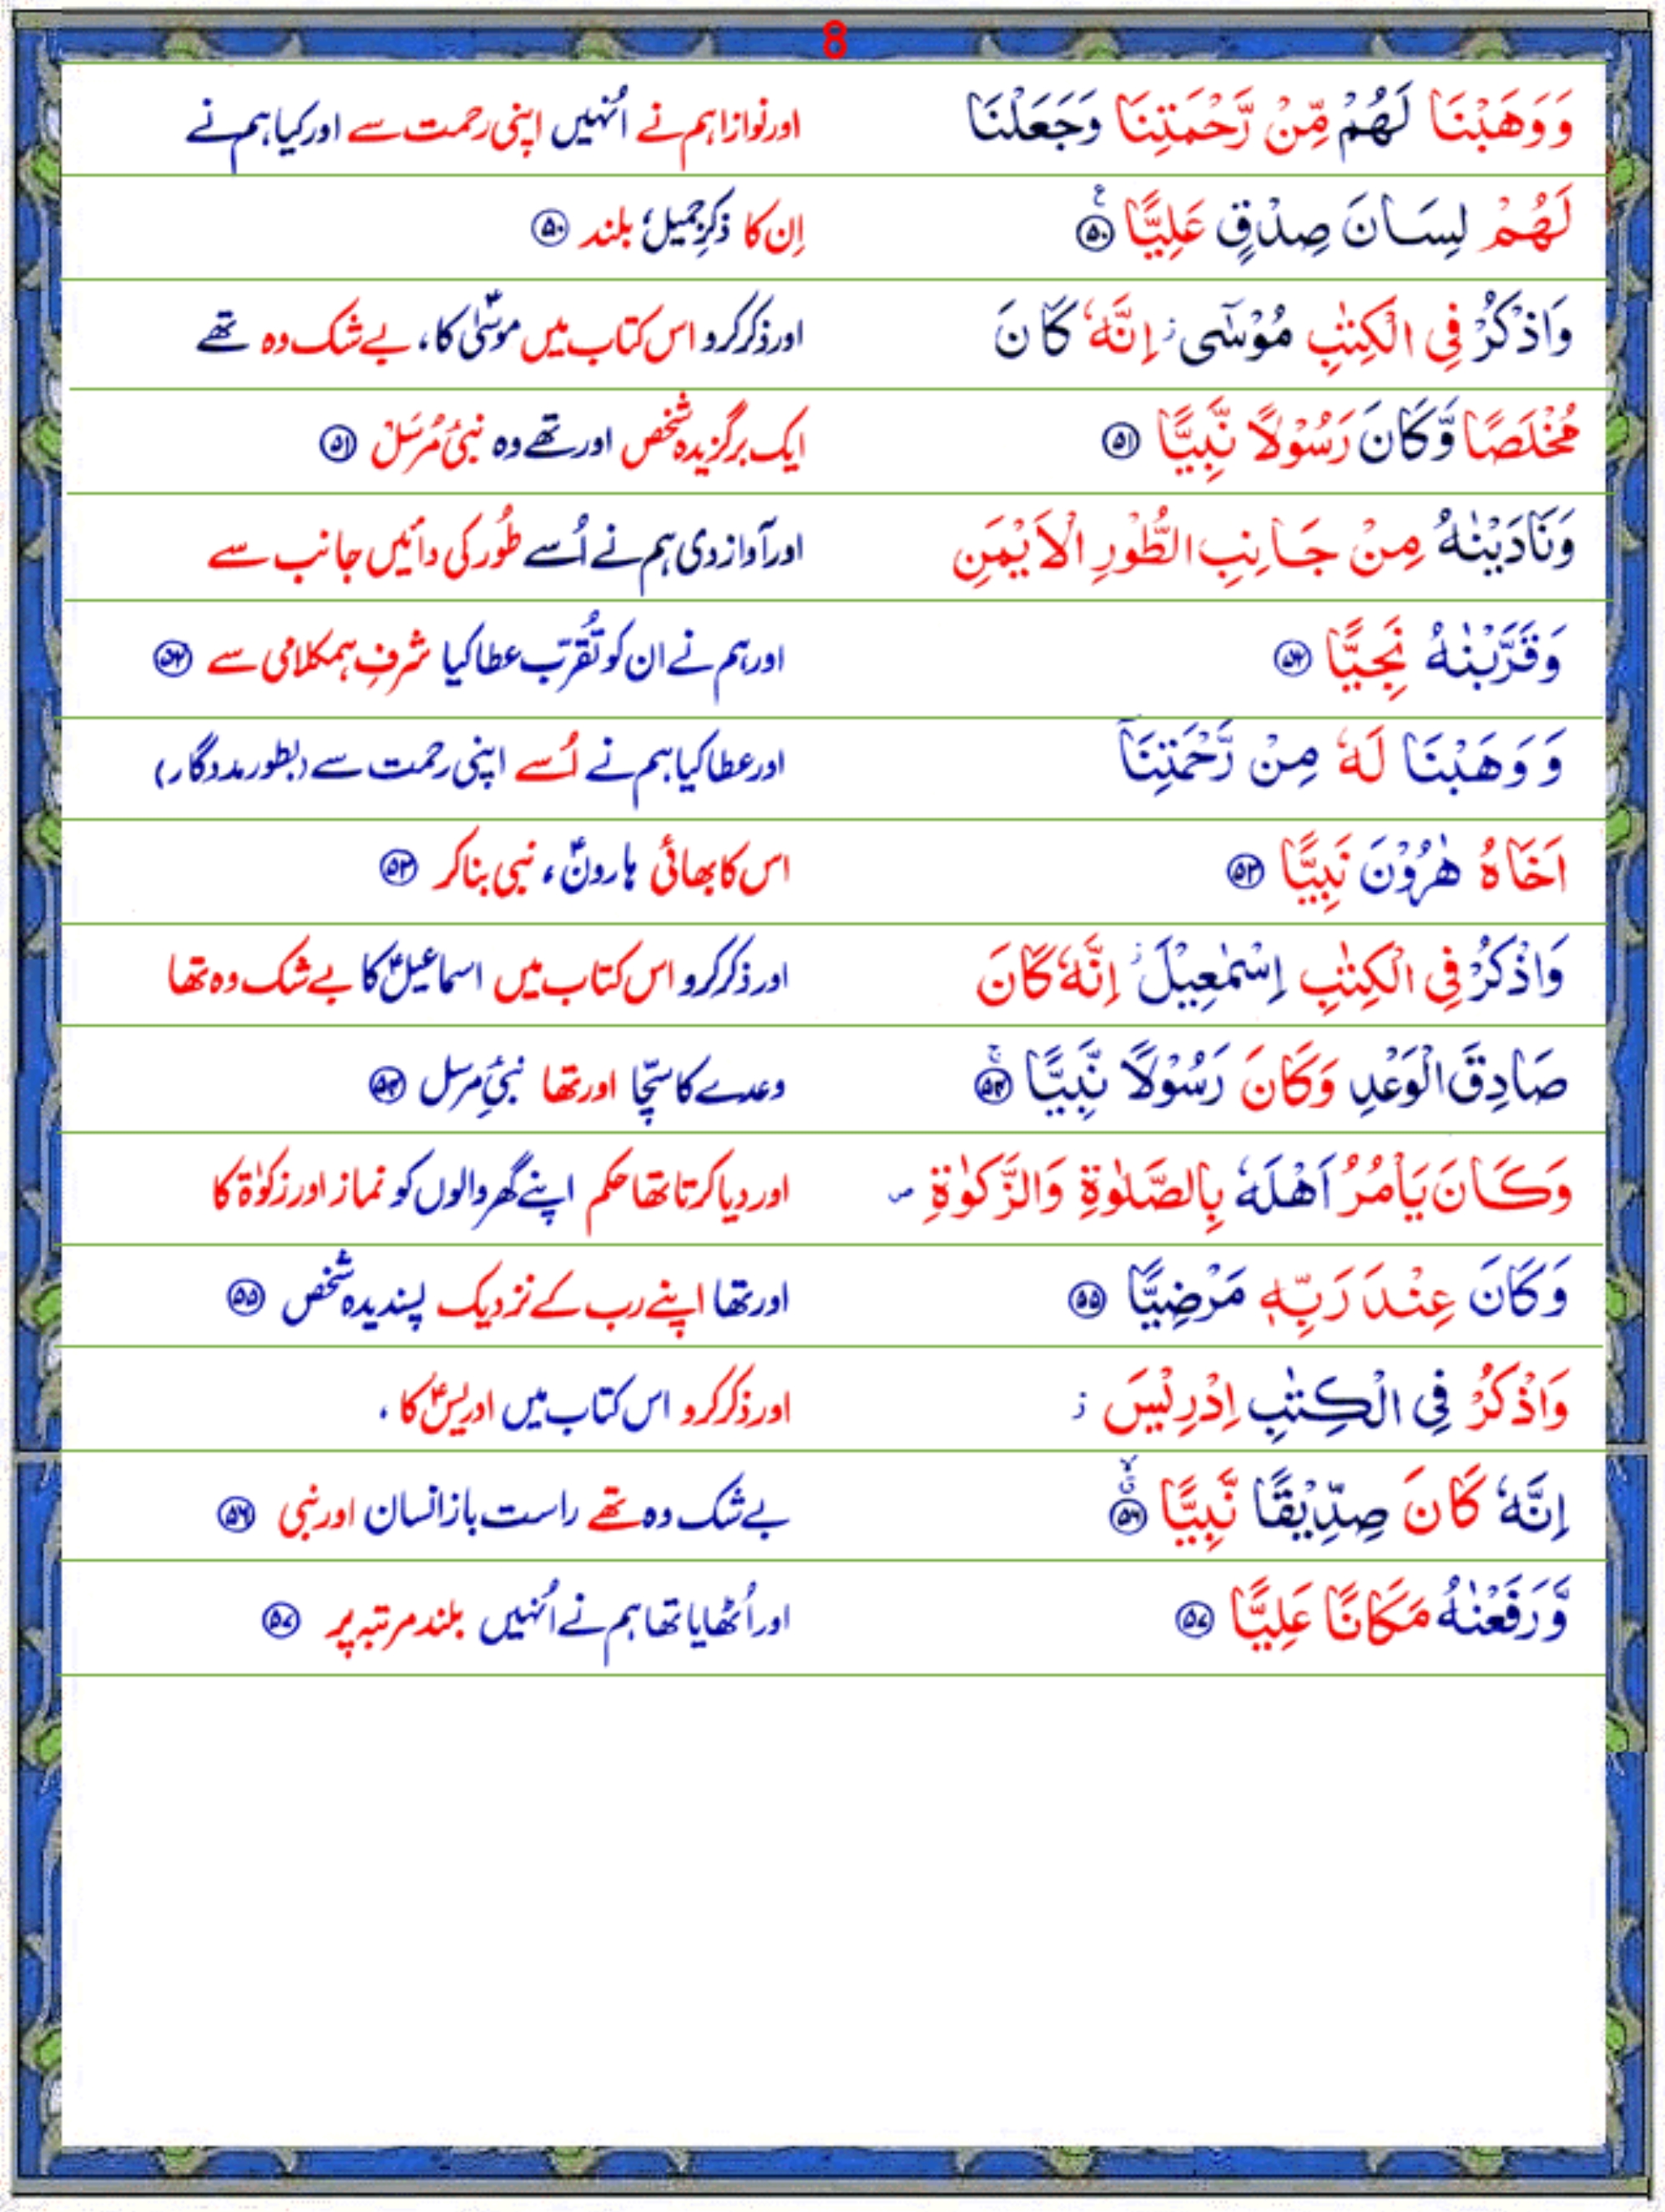 8
وَوَهَبْنَا لَهُمْ مِّنْ رَّحْمَتِنَا وَجَعَلْنَا اور نوازا ہم نے اُنہیں اپنی رحمت سے اور کیا ہم نے
لَهُمْ لِسَانَ صِدْقٍ عَلِيًّا ۵۰ ع اِن کا ذکرِ جمیل، بلند ۵۰
وَاذْكُرْ فِى الْكِتٰبِ مُوْسٰٓى ز اِنَّهٗ كَانَ اور ذکر کرو اس کتاب میں موسیٰؑ کا، بے شک وہ تھے
مُخْلَصًا وَّكَانَ رَسُوْلًا نَّبِيًّا ۵۱ ایک برگزیدہ شخص اور تھے وہ نبیٔ مُرسَلْ ۵۱
وَنَادَيْنٰهُ مِنْ جَانِبِ الطُّوْرِ الْاَيْمَنِ اور آواز دی ہم نے اُسے طُور کی دائیں جانب سے
وَقَرَّبْنٰهُ نَجِيًّا ۵۲ اور ہم نے ان کو تقُرّب عطا کیا شرفِ ہمکلامی سے ۵۲
وَوَهَبْنَا لَهٗ مِنْ رَّحْمَتِنَآ اور عطا کیا ہم نے اُسے اپنی رحمت سے (بطور مددگار)
اَخَاهُ هٰرُوْنَ نَبِيًّا ۵۳ اس کا بھائی ہارونؑ، نبی بنا کر ۵۳
وَاذْكُرْ فِى الْكِتٰبِ اِسْمٰعِيْلَ ز اِنَّهٗ كَانَ اور ذکر کرو اس کتاب میں اسماعیلؑ کا بے شک وہ تھا
صَادِقَ الْوَعْدِ وَكَانَ رَسُوْلًا نَّبِيًّا ۵۴ ج وعدے کا سچّا اور تھا نبیٔ مرسل ۵۴
وَكَانَ يَاْمُرُ اَهْلَهٗ بِالصَّلٰوةِ وَالزَّكٰوةِ ص اور دیا کرتا تھا حکم اپنے گھر والوں کو نماز اور زکوٰۃ کا
وَكَانَ عِنْدَ رَبِّهٖ مَرْضِيًّا ۵۵ اور تھا اپنے رب کے نزدیک پسندیدہ شخص ۵۵
وَاذْكُرْ فِى الْكِتٰبِ اِدْرِيْسَ ز اور ذکر کرو اس کتاب میں ادریسؑ کا ،
اِنَّهٗ كَانَ صِدِّيْقًا نَّبِيًّا ۵۶ بے شک وہ تھے راست باز انسان اور نبی ۵۶
وَّرَفَعْنٰهُ مَكَانًا عَلِيًّا ۵۷ اور اُٹھایا تھا ہم نے اُنہیں بلند مرتبہ پر ۵۷